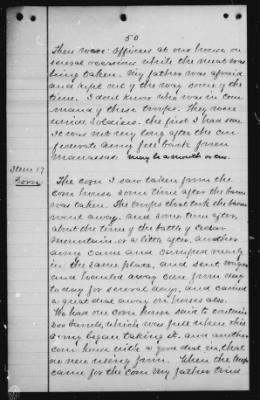 50
There were officers at our house on
several occasions while the meat was
being taken. My father was afraid
and kept out of the way some of the
time. I dont know who was in com
mand of these troops. They were
union soldiers. the first I had seen.
It was not very long after the con
federate army fell back from
Manassas may be a month or two.
Item 17
Corn
The corn I saw taken from the
corn house some time after the bacon
was taken. The troops that took the bacon
went away. and some time after,
about the time of the battle of Cedar
Mountain or a little after, another
army came and camped nearly
in the same place, and sent wagons
and hauled away corn from day
to day for several days, and carried
a great deal away on horses also.
We had one corn house said to contain
200 barrels, which was full when this
army began taking it. and another
corn house with a good deal in, that
we were using from. When the troops
came for the corn my father tried